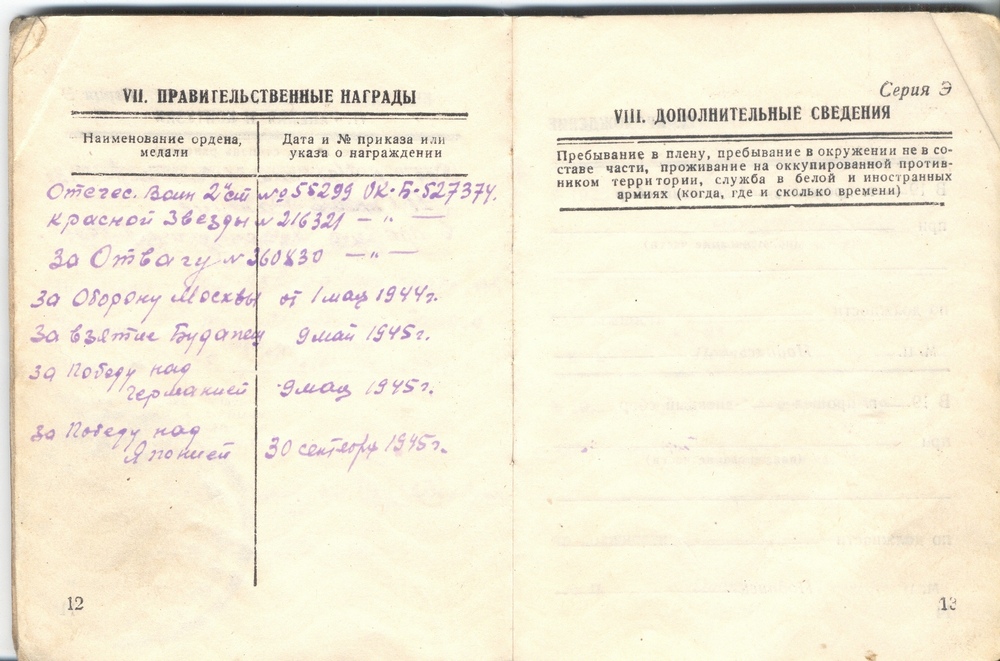 VII. ПРАВИТЕЛЬСТВЕННЫЕ НАГРАДЫ
Наименование ордена, медали
Дата и № приказа или указа о награждении
Отечес. Воин 2й ст № 55299 УК-Б-527374.
Красной Звезды № 216321 — " —
За Отвагу № 360830 — " —
За Оборону Москвы от 1 мая 1944г.
За взятие Будапешт 9 май 1945г.
За Победу над
Германией 9 мая 1945г.
За Победу над
Японией 30 сентября 1945г.
12
Серия Э
VIII. ДОПОЛНИТЕЛЬНЫЕ СВЕДЕНИЯ
Пребывание в плену, пребывание в окружении не в со-
ставе части, проживание на оккупированной против-
ником территории, служба в белой и иностранных
армиях (когда, где и сколько времени)
13